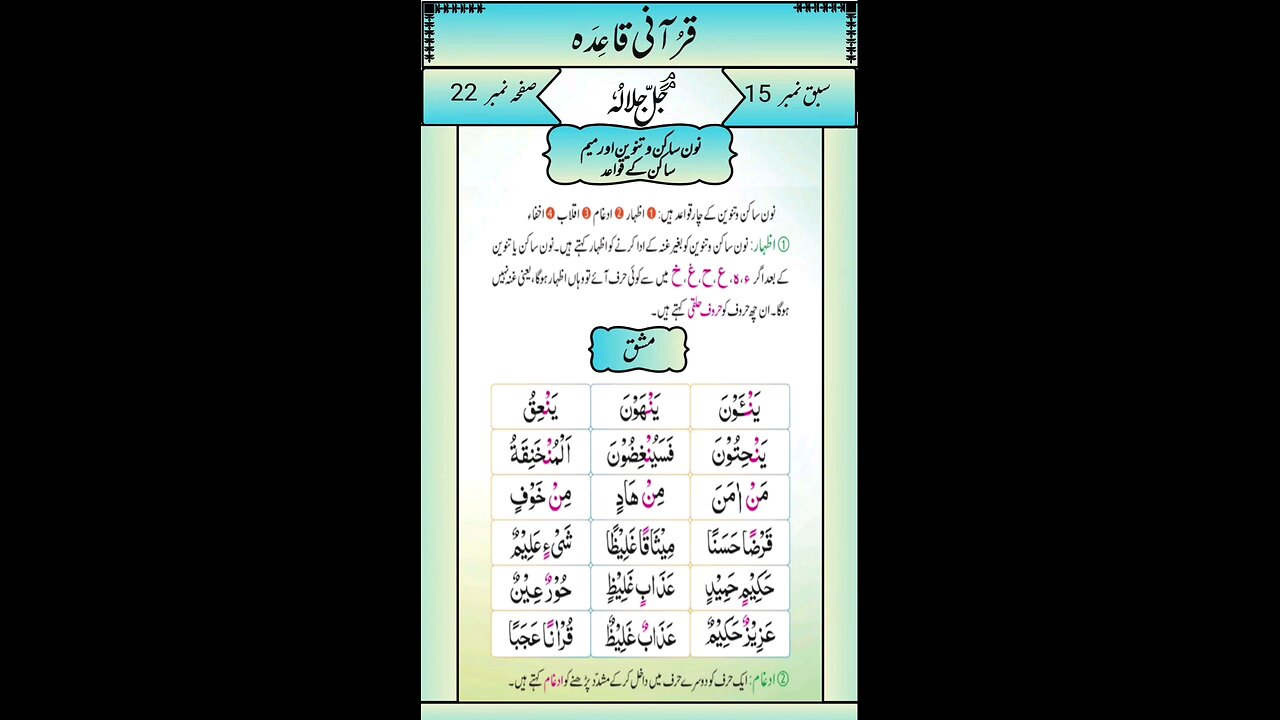 قرآنی قاعِدَہ
سبق نمبر 15
جَلَّ جلالہٗ
صفحہ نمبر 22
نون ساکن و تنوین اور میم
ساکن کے قواعد
نون ساکن و تنوین کے چار قواعد ہیں: ❶ اظہار ❷ ادغام ❸ اقلاب ❹ اخفاء
① اظہار: نون ساکن و تنوین کو بغیر غنہ کے ادا کرنے کو اظہار کہتے ہیں۔ نون ساکن یا تنوین
کے بعد اگر ء، ہ، ع، ح، غ، خ میں سے کوئی حرف آئے تو وہاں اظہار ہوگا، یعنی غنہ نہیں
ہوگا۔ ان چھ حروف کو حروف حلقی کہتے ہیں۔
مشق
يَنْـَٔوْنَ يَنْهَوْنَ يَنْعِقُ
يَنْحِتُوْنَ فَسَيُنْغِضُوْنَ اَلْمُنْخَنِقَةُ
مَنْ اٰمَنَ مِنْ هَادٍ مِنْ خَوْفٍ
قَرْضًا حَسَنًا مِيْثَاقًا غَلِيْظًا شَىْءٍ عَلِيْمٌ
حَكِيْمٍ حَمِيْدٍ عَذَابٍ غَلِيْظٍ حُوْرٌ عِيْنٌ
عَزِيْزٌ حَكِيْمٌ عَذَابٌ غَلِيْظٌ قُرْاٰنًا عَجَبًا
② ادغام: ایک حرف کو دوسرے حرف میں داخل کر کے مشدّد پڑھنے کو ادغام کہتے ہیں۔